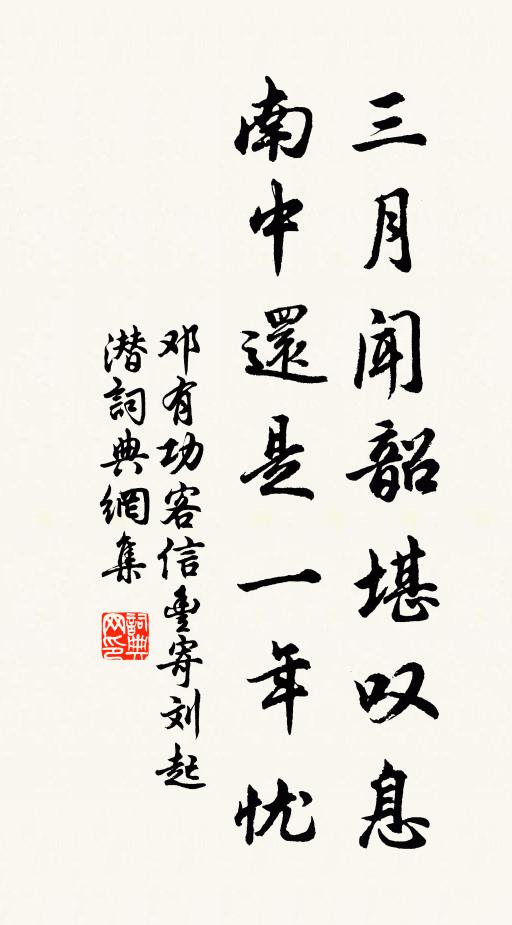 三月闻韶堪叹息
南中還是一年忧
邓有功客信豊寄刘起
潜詞典網集
詞典网印